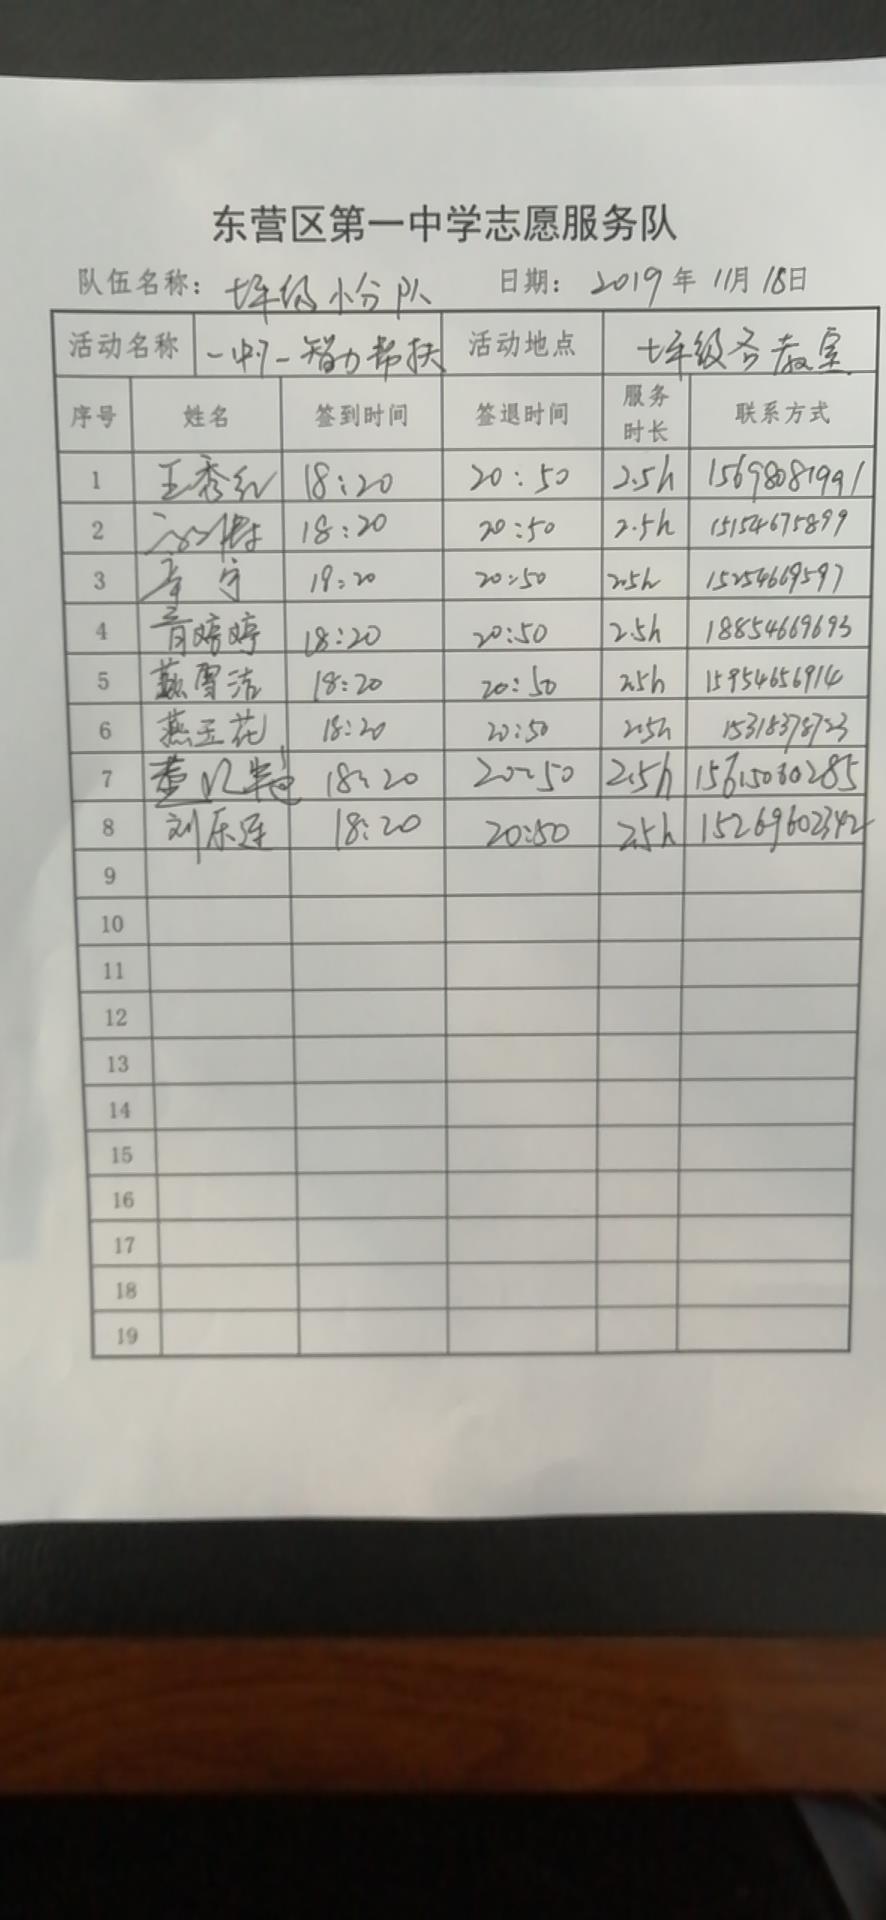 东营区第一中学志愿服务队
队伍名称：七年级小分队 日期：2019年11月18日
活动名称 活动地点 七年级各教室
序号 姓名 签到时间 签退时间 服务时长 联系方式
1 王秀红 18:20 20:50 2.5h 15698081991
2 18:20 20:50 2.5h 15154675899
3 18:20 20:50 2.5h 15254669597
4 婷婷 18:20 20:50 2.5h 18854669693
5 雪洁 18:20 20:50 2.5h 15954656914
6 燕玉花 18:20 20:50 2.5h 15318378723
7 董 18:20 20:50 2.5h 15615060285
8 刘乐莲 18:20 20:50 2.5h 15269602342
9
10
11
12
13
14
15
16
17
18
19